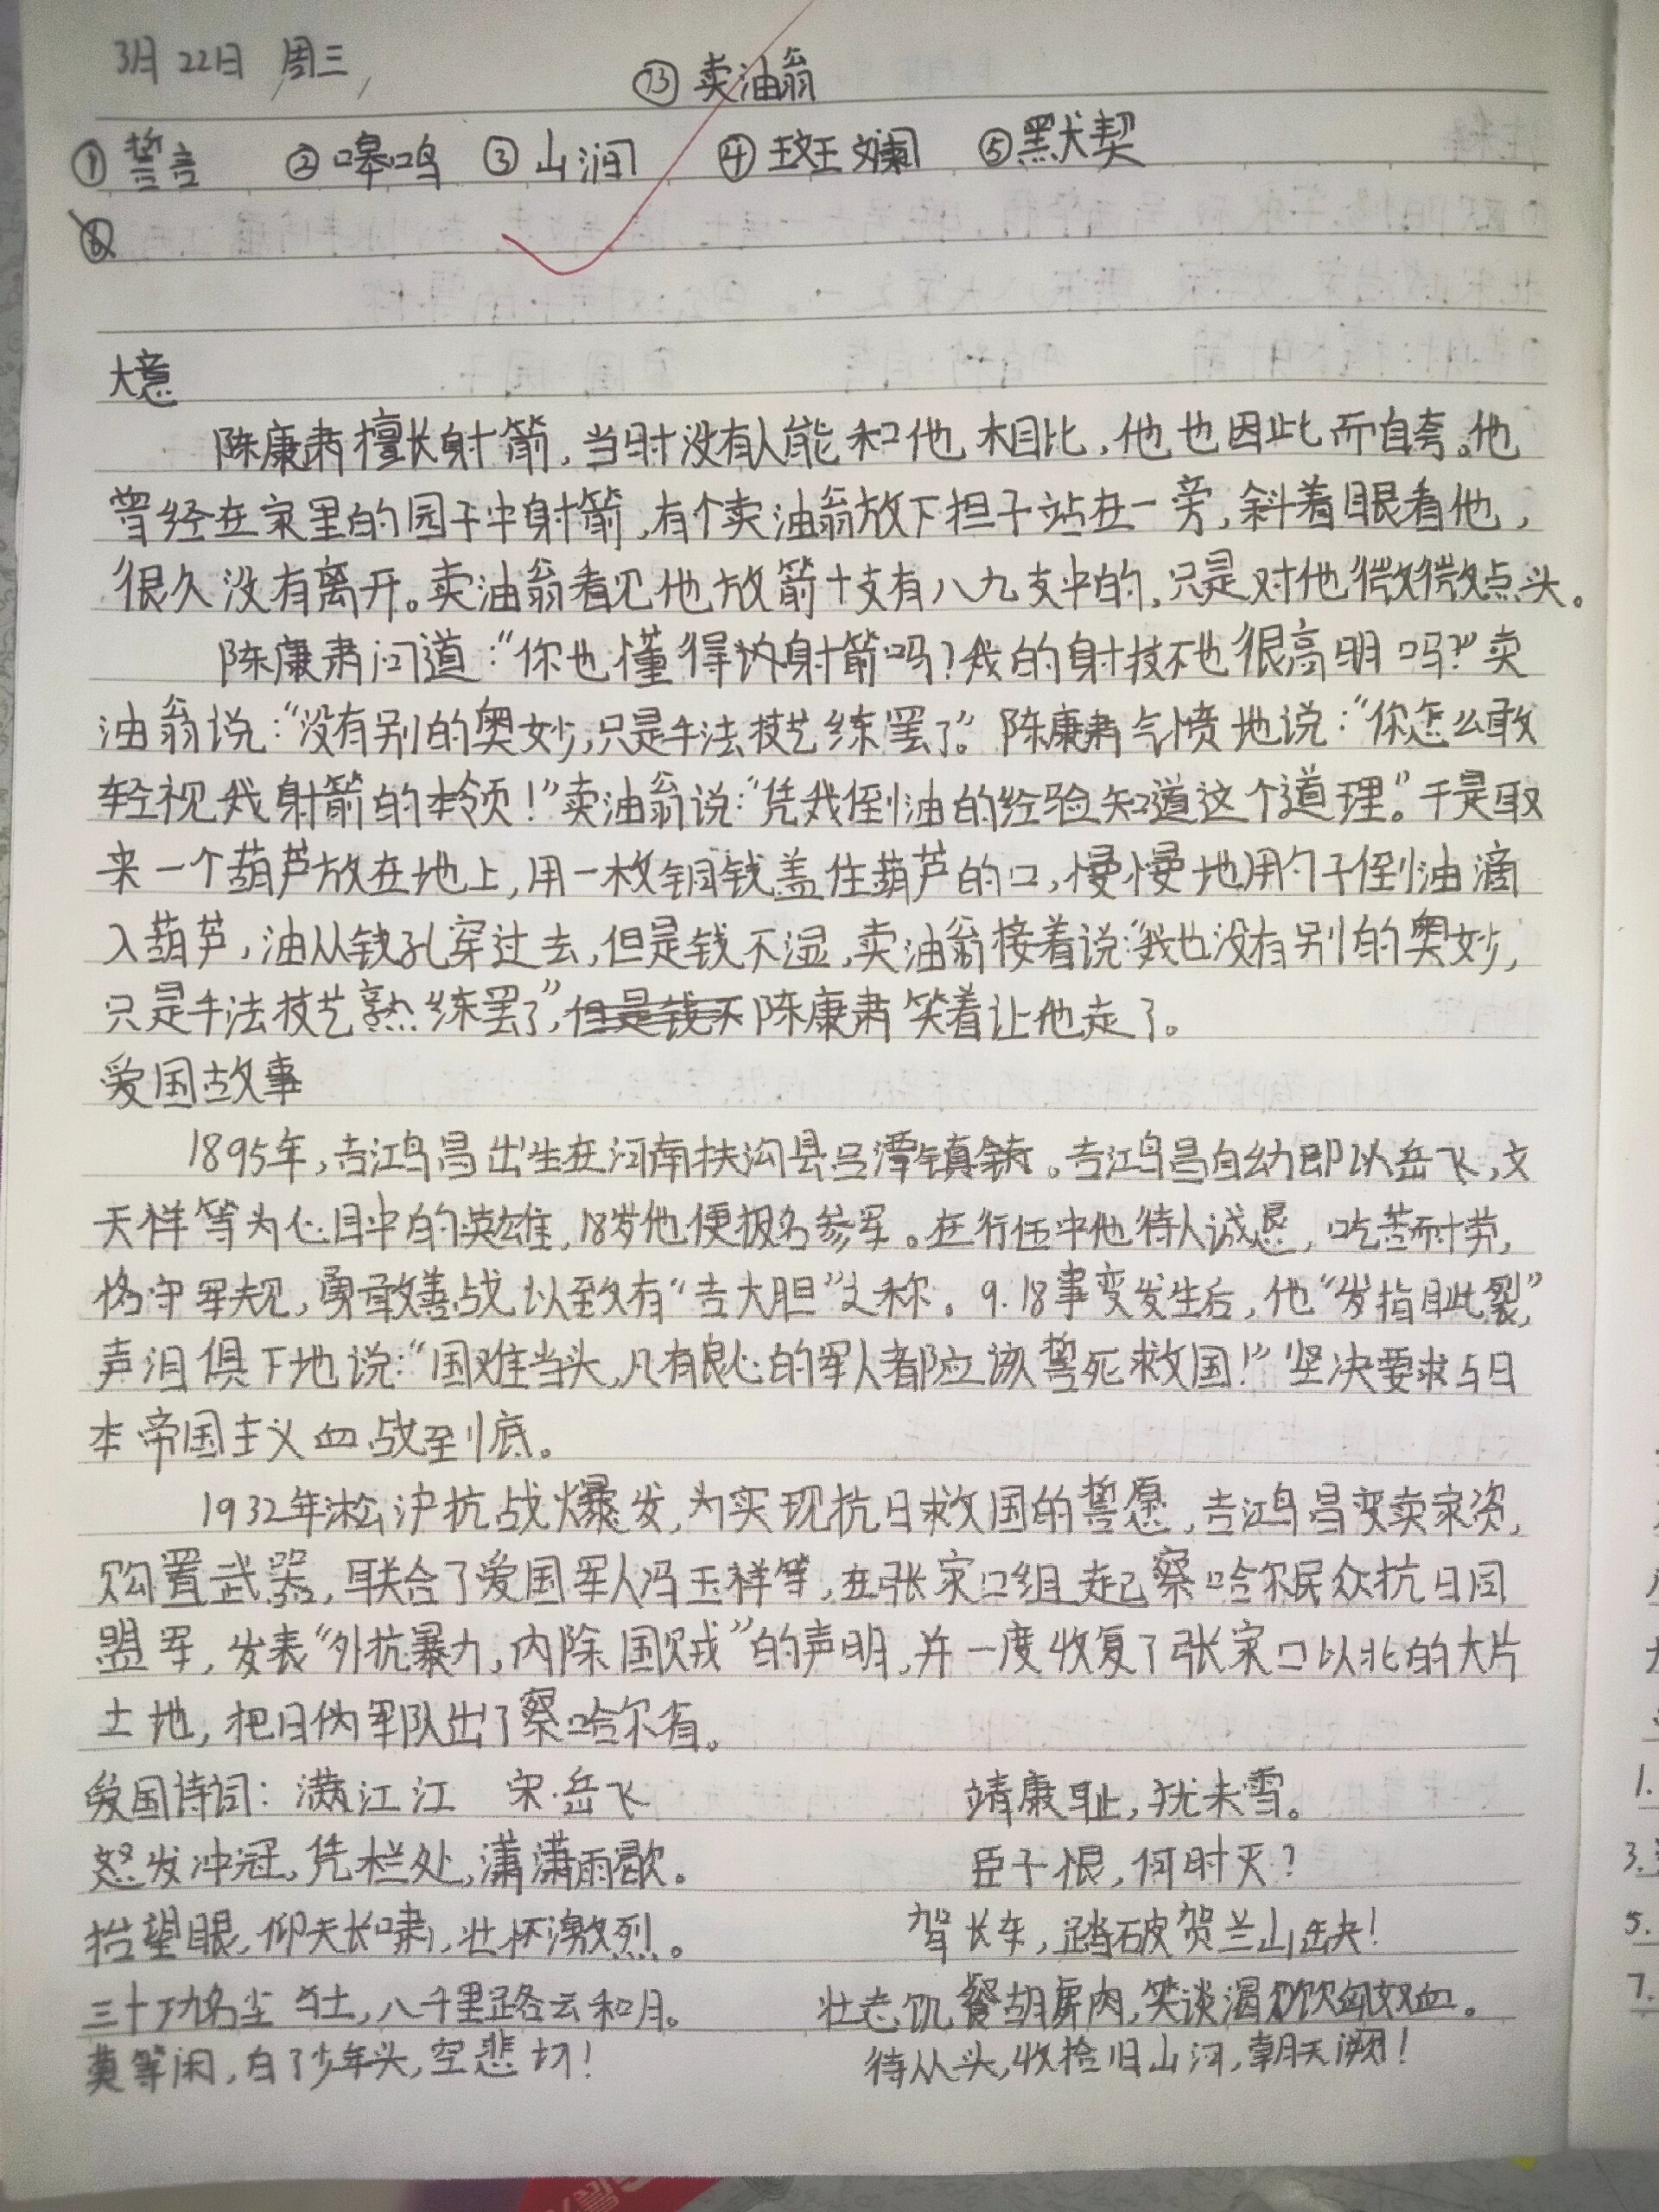 3月22日 周三
⑬ 卖油翁
① 誓言 ② 嗥鸣 ③ 山涧 ④ 斑斓 ⑤ 默契
⑥
大意
陈康肃擅长射箭,当时没有人能和他相比,他也因此而自夸。他
曾经在家里的园子中射箭,有个卖油翁放下担子站在一旁,斜着眼看他,
很久没有离开。卖油翁看见他放箭十支有八九支中的,只是对他微微点头。
陈康肃问道:“你也懂得射箭吗?我的射技不也很高明吗?”卖
油翁说:“没有别的奥妙,只是手法技艺练罢了。”陈康肃气愤地说:“你怎么敢
轻视我射箭的本领!”卖油翁说:“凭我倒油的经验知道这个道理。”于是取
来一个葫芦放在地上,用一枚铜钱盖住葫芦的口,慢慢地用勺子倒油滴
入葫芦,油从钱孔穿过去,但是钱不湿,卖油翁接着说:“我也没有别的奥妙,
只是手法技艺熟练罢了”,但是钱不陈康肃笑着让他走了。
爱国故事
1895年,吉鸿昌出生在河南扶沟县吕潭镇。吉鸿昌自幼即以岳飞,文
天祥等为心目中的英雄,18岁他便报名参军。在行伍中他待人诚恳,吃苦耐劳,
恪守军规,勇敢善战,以致有“吉大胆”之称。9.18事变发生后,他“发指眦裂”,
声泪俱下地说:“国难当头,凡有良心的军人都应该誓死救国!”坚决要求与日
本帝国主义血战到底。
1932年淞沪抗战爆发,为实现抗日救国的誓愿,吉鸿昌变卖家资,
购置武器,联合了爱国军人冯玉祥等,在张家口组起察哈尔民众抗日同
盟军,发表“外抗暴力,内除国贼”的声明,并一度收复了张家口以北的大片
土地,把日伪军队出了察哈尔省。
爱国诗词:满江江 宋·岳飞
怒发冲冠,凭栏处,潇潇雨歇。
抬望眼,仰天长啸,壮怀激烈。
三十功名尘与土,八千里路云和月。
莫等闲,白了少年头,空悲切!
靖康耻,犹未雪。
臣子恨,何时灭?
驾长车,踏破贺兰山缺!
壮志饥餐胡虏肉,笑谈渴饮匈奴血。
待从头,收拾旧山河,朝天阙!
1.
3.
5.
7.